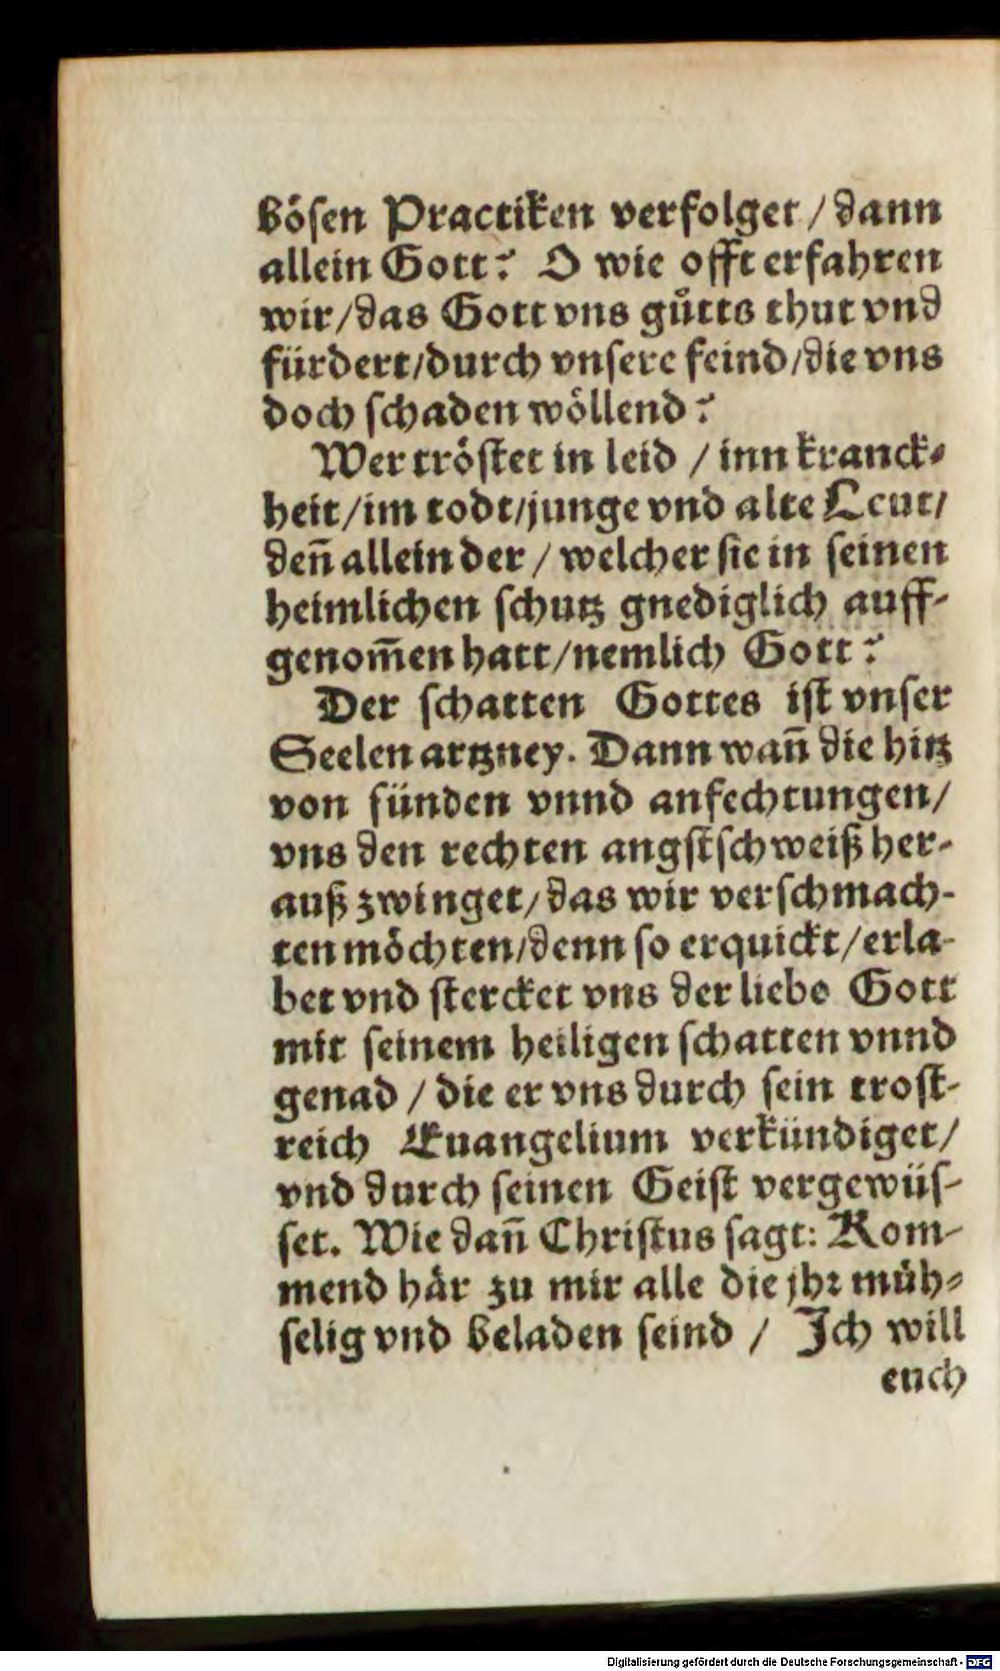 bösen Practiken verfolget / dann
allein Gott? O wie offt erfahren
wir/das Gott vns gůtts thut vnd
fürdert/durch vnsere feind/die vns
doch schaden wöllend?
Wer tröstet in leid / inn kranck⸗
heit/im todt/junge vnd alte Leut/
deñ allein der / welcher sie in seinen
heimlichen schutz gnediglich auff-
genom̃en hatt/nemlich Gott?
Der schatten Gottes ist vnser
Seelen artzney. Dann wañ die hitz
von sünden vnnd anfechtungen/
vns den rechten angstschweiß her-
auß zwinget/das wir verschmach-
ten möchten/denn so erquickt/erla-
bet vnd stercket vns der liebe Gott
mit seinem heiligen schatten vnnd
genad / die er vns durch sein trost-
reich Euangelium verkündiget/
vnd durch seinen Geist vergewüs-
set. Wie dañ Christus sagt: Kom-
mend här zu mir alle die jhr müh⸗
selig vnd beladen seind / Ich will
euch
Digitalisierung gefördert durch die Deutsche Forschungsgemeinschaft - DFG